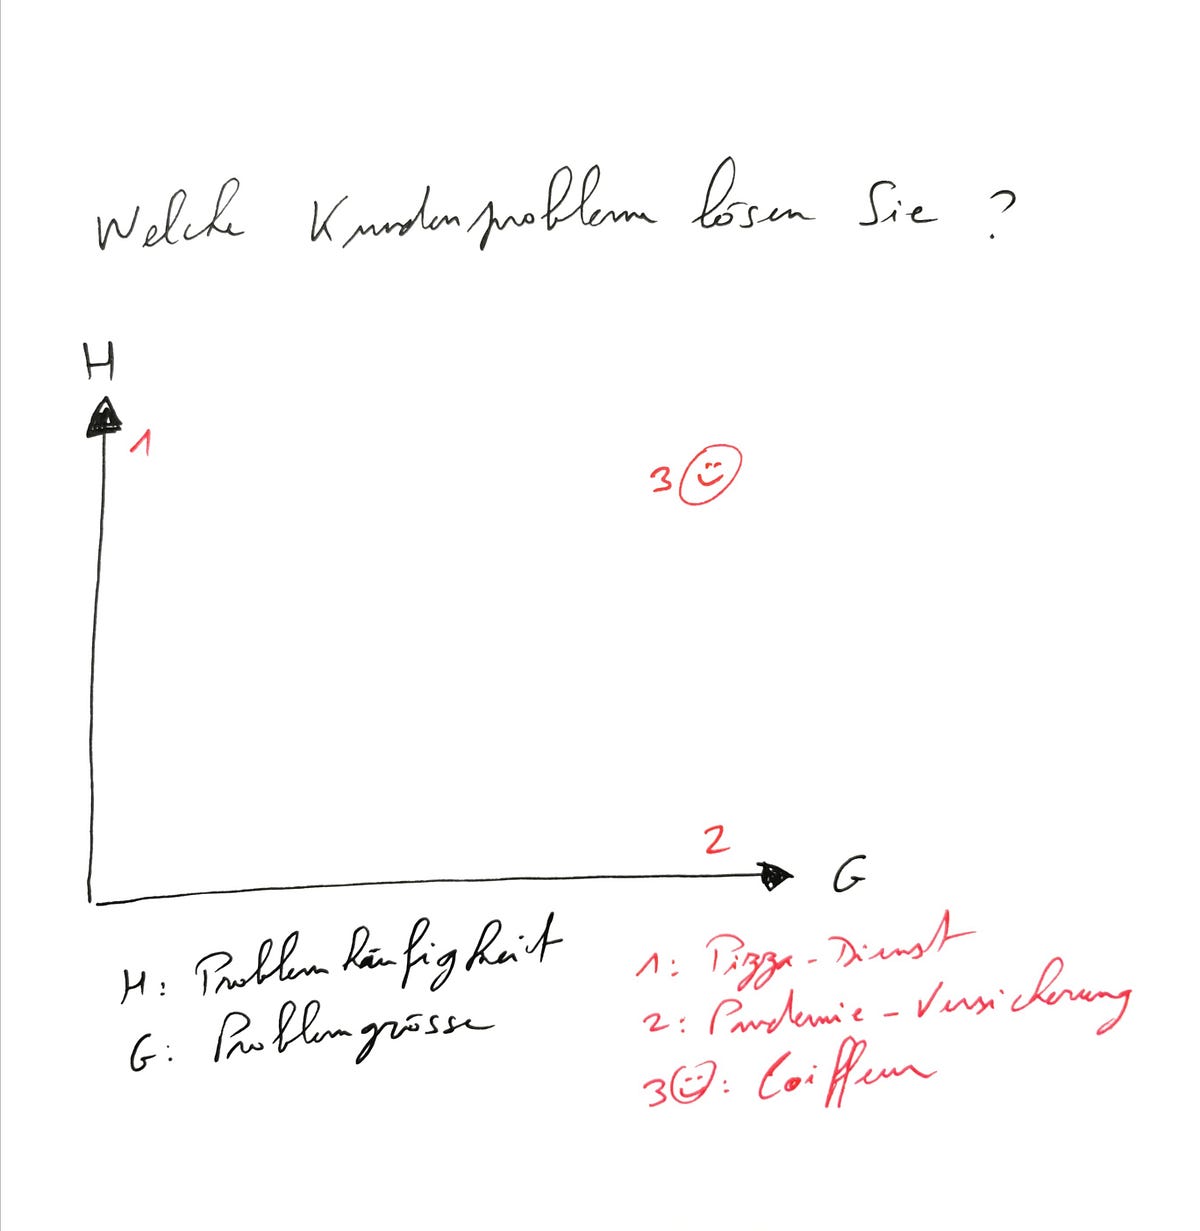 Welche Kundenprobleme lösen Sie ?
H
1
3
2
G
H: Problemhäufigkeit
G: Problemgrösse
1: Pizza-Dienst
2: Pandemie-Versicherung
3 : Coiffeur